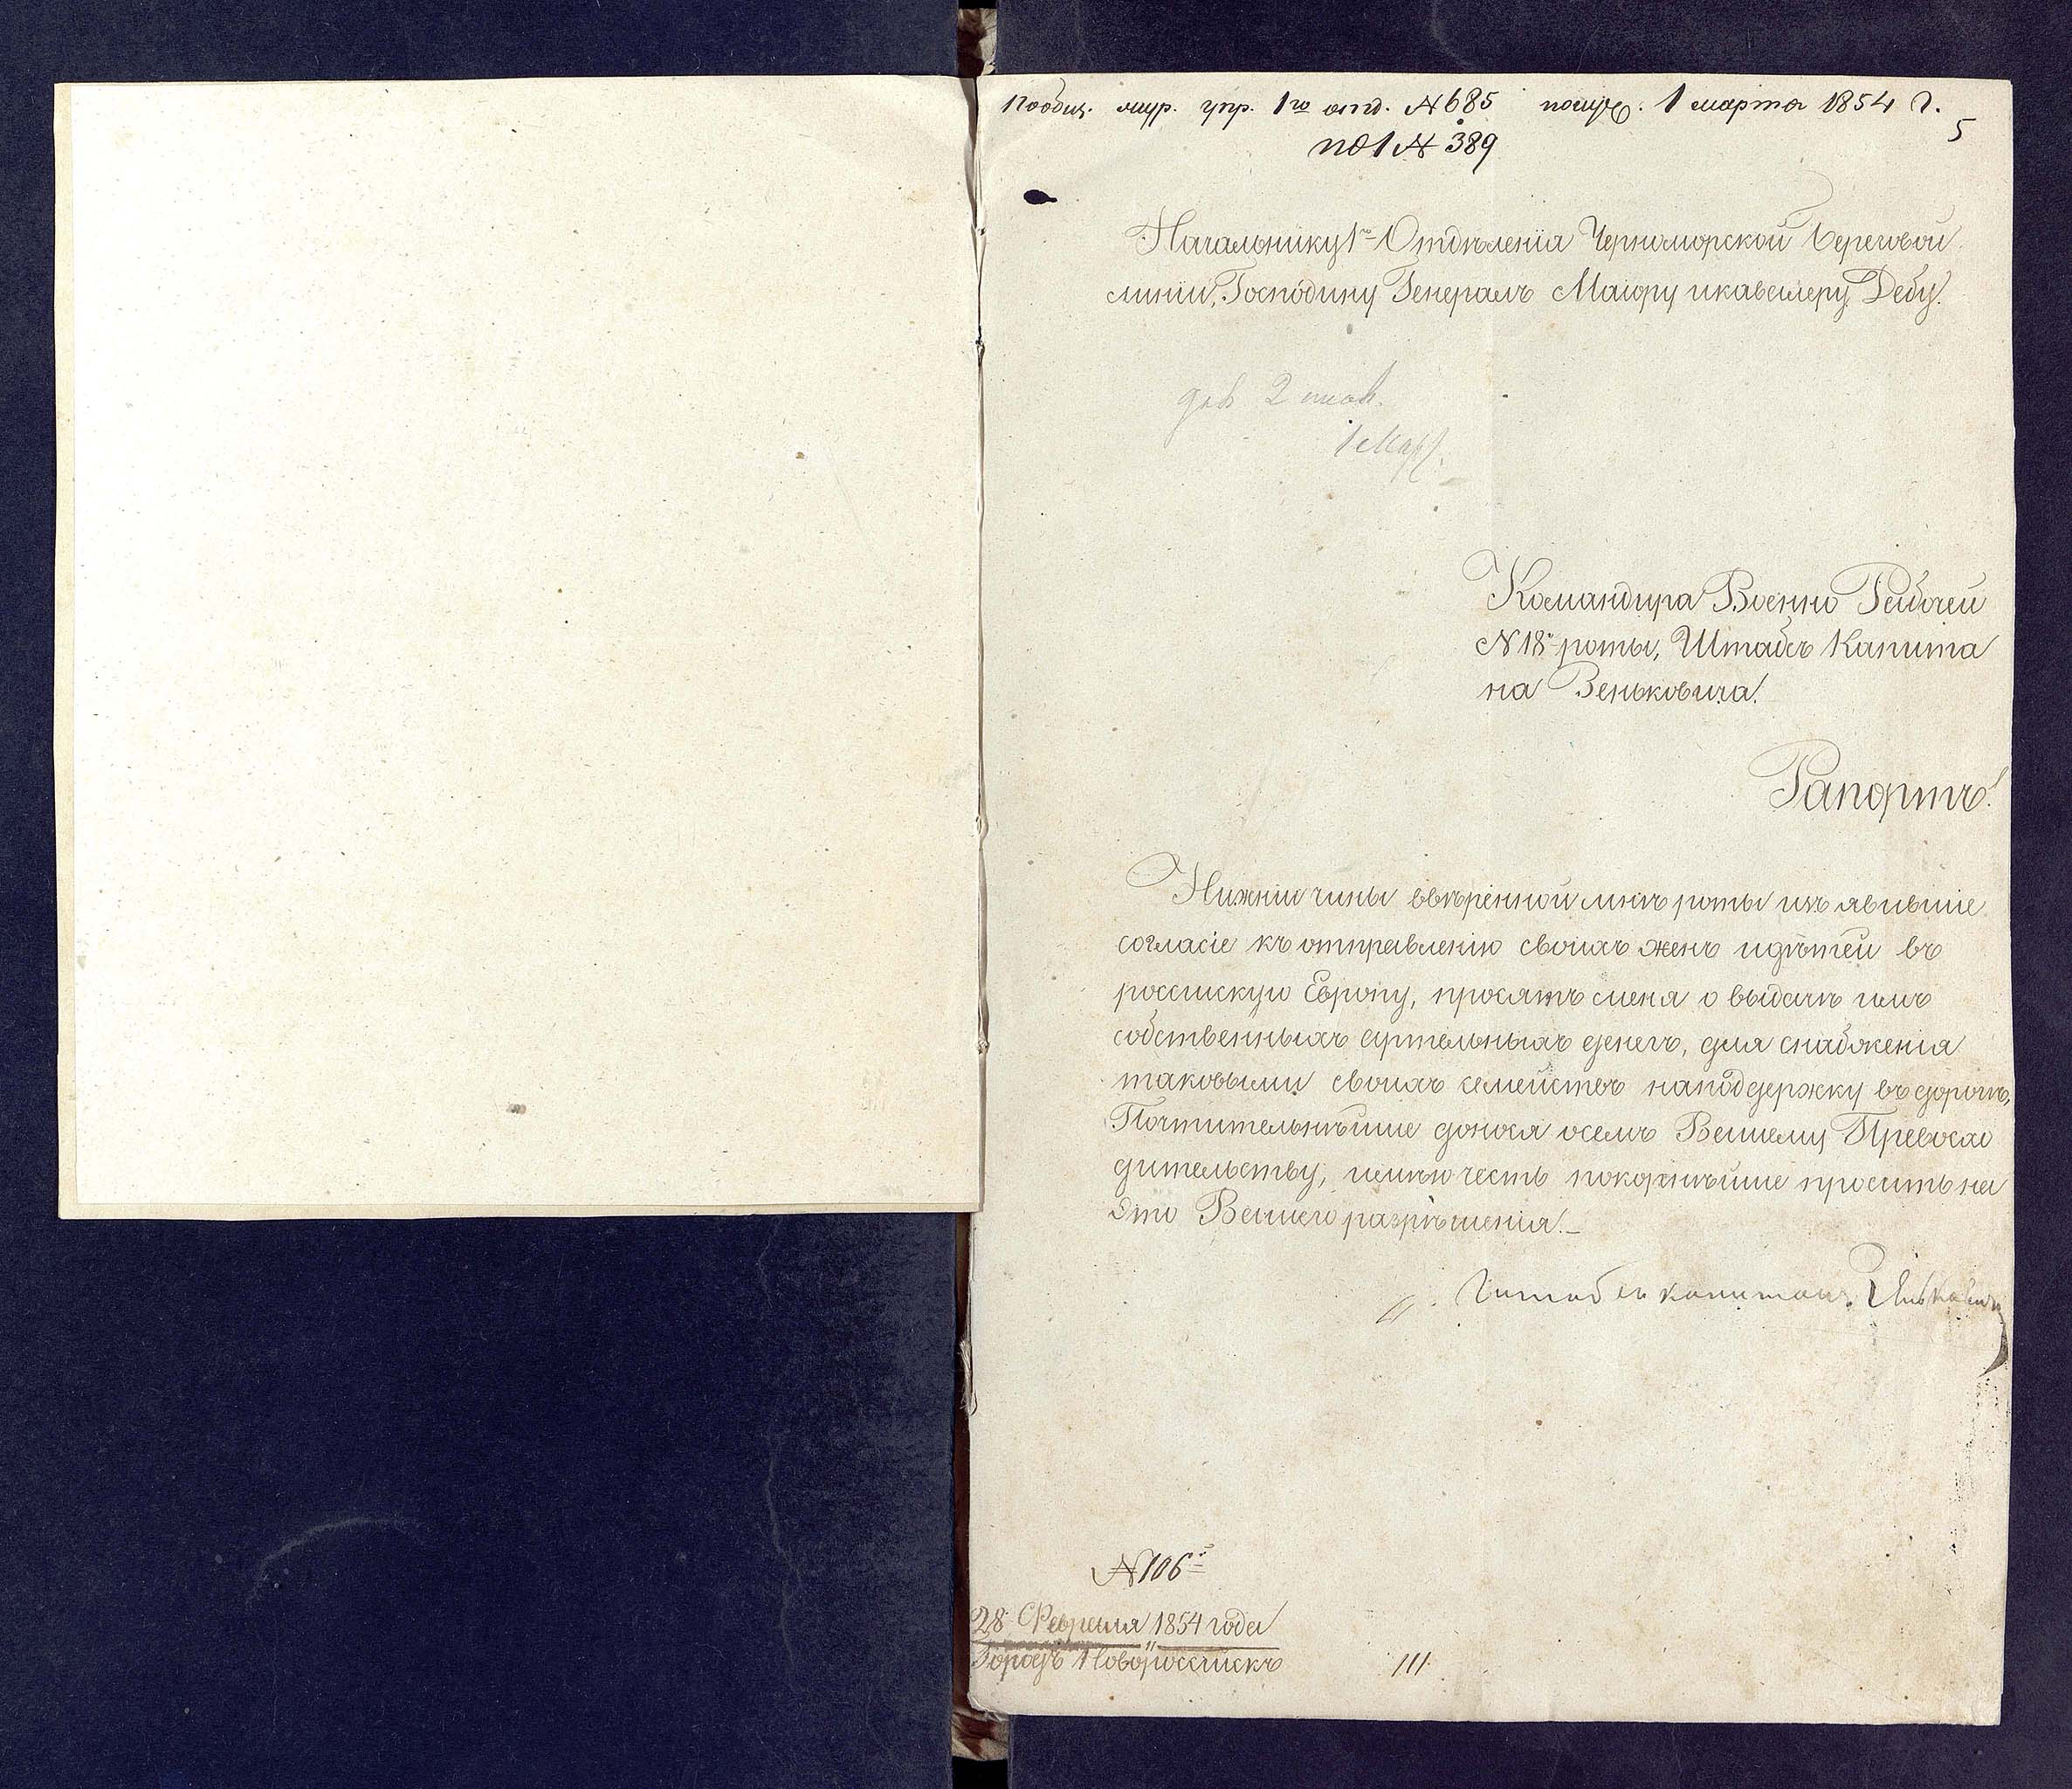 По общ. жур. упр. 1го отд. № 685 получ. 1 марта 1854 г.
5
по 1 № 389
Начальнику 1го Отдѣленія Черноморской Береговой
линіи, Господину Генералъ Маіору и кавалеру Дебу.
2
1 Мар
Командира Военно Рабочей
№ 18й роты, Штабсъ Капита
на Зеньковича.
Рапортъ.
Нижніи чины ввѣренной мнѣ роты изъявившіе
согласіе къ отправленію своихъ женъ и дѣтей въ
россискую Европу, просятъ меня о выдачѣ имъ
собственныхъ артельныхъ денегъ, для снабженія
таковыми своихъ семействъ на поддержку въ дорогѣ,
Почтительнѣйше донося осемъ Вашему Превосхо
дительству, имѣю честь покорнѣйше просить на
это Вашего разрѣшенія.
Штабсъ капитанъ Зеньковичъ
№ 106й
28 Февраля 1854 года
Городъ Новороссійскъ
111.